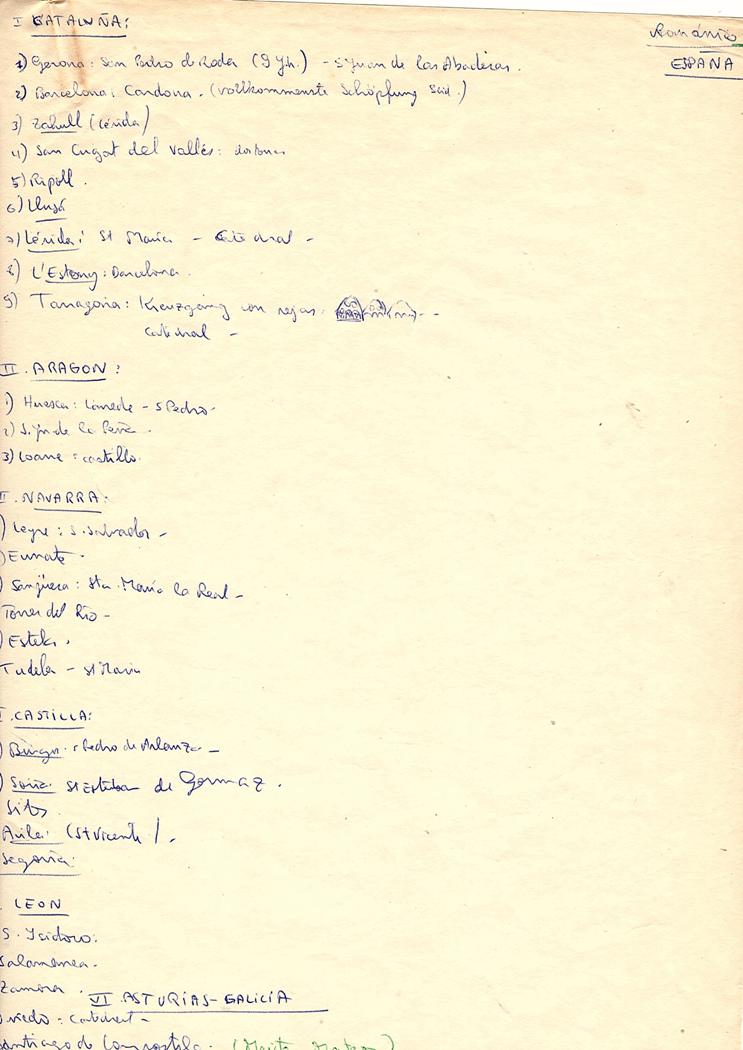 Románico
ESPAÑA
I CATALUÑA:
1) Gerona: San Pedro de Roda (9 Jh.) - S Juan de las Abadesas.
2) Barcelona: Cardona. (vollkommenste Schöpfung Süd.)
3) Tahull (Lérida)
4) San Cugat del Vallés:
5) Ripoll.
6)
7) Lérida: St María - Catedral -
8) L'Estany: Barcelona.
9) Tarragona: Kreuzgang con rejas:
catedral -
II. ARAGON:
1) Huesca: - S Pedro.
2) S. Jn de la Peña.
3) Loarre: castillo.
II. NAVARRA:
) Leyre: S. Salvador -
) Eunate.
) Sangüesa: Sta. María la Real -
Torres del Río -
) Estella.
Tudela - St María
I. CASTILLA:
) Burgos: Pedro de Arlanza -
) Soria: St Esteban de Gormaz.
Silos.
Avila: (St Vicente).
Segovia:
. LEON
S. Isidoro:
Salamanca.
Zamora.
VI ASTURIAS-GALICIA
Oviedo:
Santiago de Compostela.